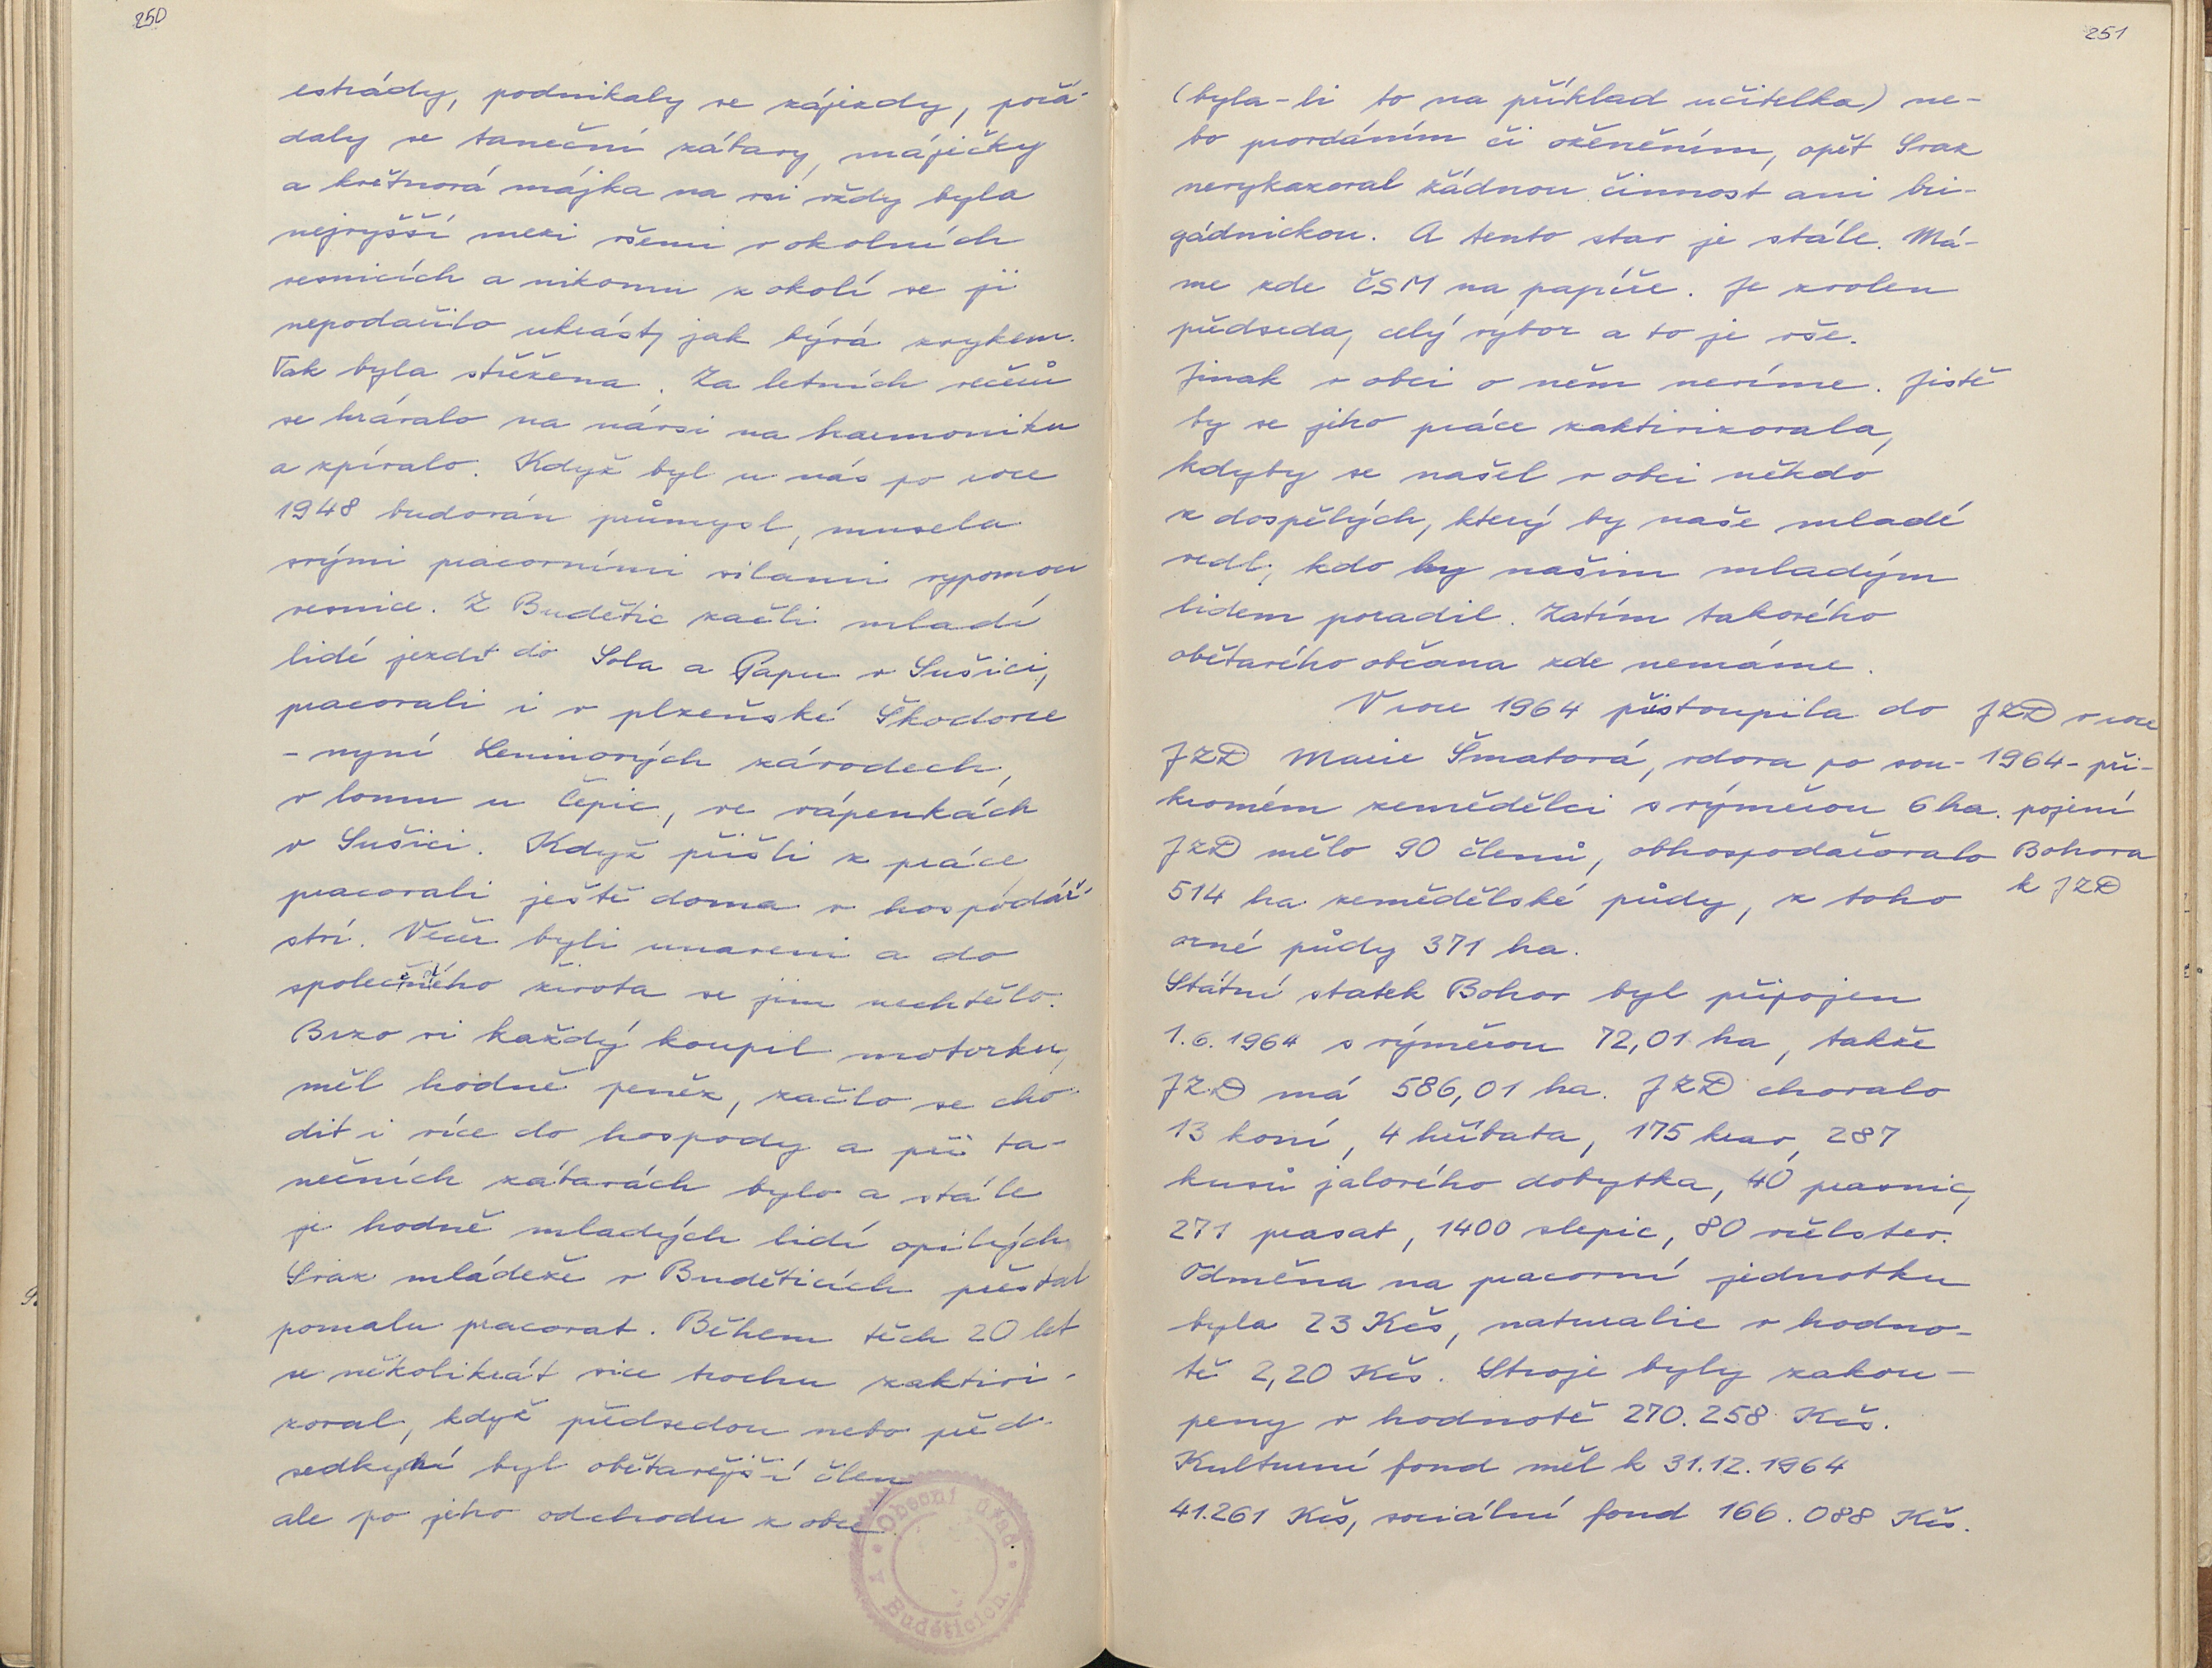 250
estrády, podnikaly se zájezdy, pořá-
daly se taneční zábavy, májičky
a květnová májka na vsi vždy byla
nejvyšší mezi všemi v okolních
vesnicích a nikomu z okolí se ji
nepodařilo ukrást, jak bývá zvykem.
Tak byla střežena. Za letních večerů
se hrávalo na návsi na harmoniku
a zpívalo. Když byl u nás po roce
1948 budován průmysl, musela
svými pracovními silami vypomoci
vesnice. Z Budětic začli mladí
lidé jezdit do Sola a Papu v Sušici,
pracovali i v plzeňské Škodovce
- nyní Leninových závodech,
v lomu u Čepic, ve vápenkách
v Sušici. Když přišli z práce
pracovali ještě doma v hospodář
ství. Večer byli unaveni a do
společného života se jim nechtělo.
Brzo si každý koupil motorku,
měl hodně peněz, začlo se cho-
dit i více do hospody a při ta-
nečních zábavách bylo a stále
je hodně mladých lidí opilých.
Svaz mládeže v Buděticích přestal
pomalu pracovat. Během těch 20 let
se několikrát sice trochu zaktivi-
zoval, když předsedou nebo před-
sedkyní byl obětavější člen
ale po jeho odchodu z obce
Obecní úřad
v
Buděticích.
251
(byla-li to na příklad učitelka) ne-
bo provdáním či oženěním, opět Svaz
nevykazoval žádnou činnost ani bri-
gádnickou. A tento stav je stále. Má-
me zde ČSM na papíře. Je zvolen
předseda, celý výbor a to je vše.
Jinak v obci o něm nevíme. Jistě
by se jeho práce zaktivizovala,
kdyby se našel v obci někdo
z dospělých, který by naše mladé
vedl, kdo by našim mladým
lidem poradil. Zatím takového
obětavého občana zde nemáme.
V roce 1964 přistoupila do
JZD Marie Šmatová, vdova po sou-
kromém zemědělci s výměrou 6 ha.
JZD mělo 90 členů, obhospodařovalo
514 ha zemědělské půdy, z toho
orné půdy 371 ha.
JZD v roce
1964 - při-
pojení
Bohova
k JZD
Státní statek Bohov byl připojen
1.6.1964 s výměrou 72,01 ha, takže
JZD má 586,01 ha. JZD chovalo
13 koní, 4 hříbata, 175 krav, 287
kusů jalového dobytka, 40 prasnic,
271 prasat, 1400 slepic, 80 včelstev.
Odměna na pracovní jednotku
byla 23 Kčs, naturalie v hodno-
tě 2,20 Kčs. Stroje byly zakou-
peny v hodnotě 270.258 Kčs.
Kulturní fond měl k 31.12.1964
41.261 Kčs, sociální fond 166.088 Kčs.